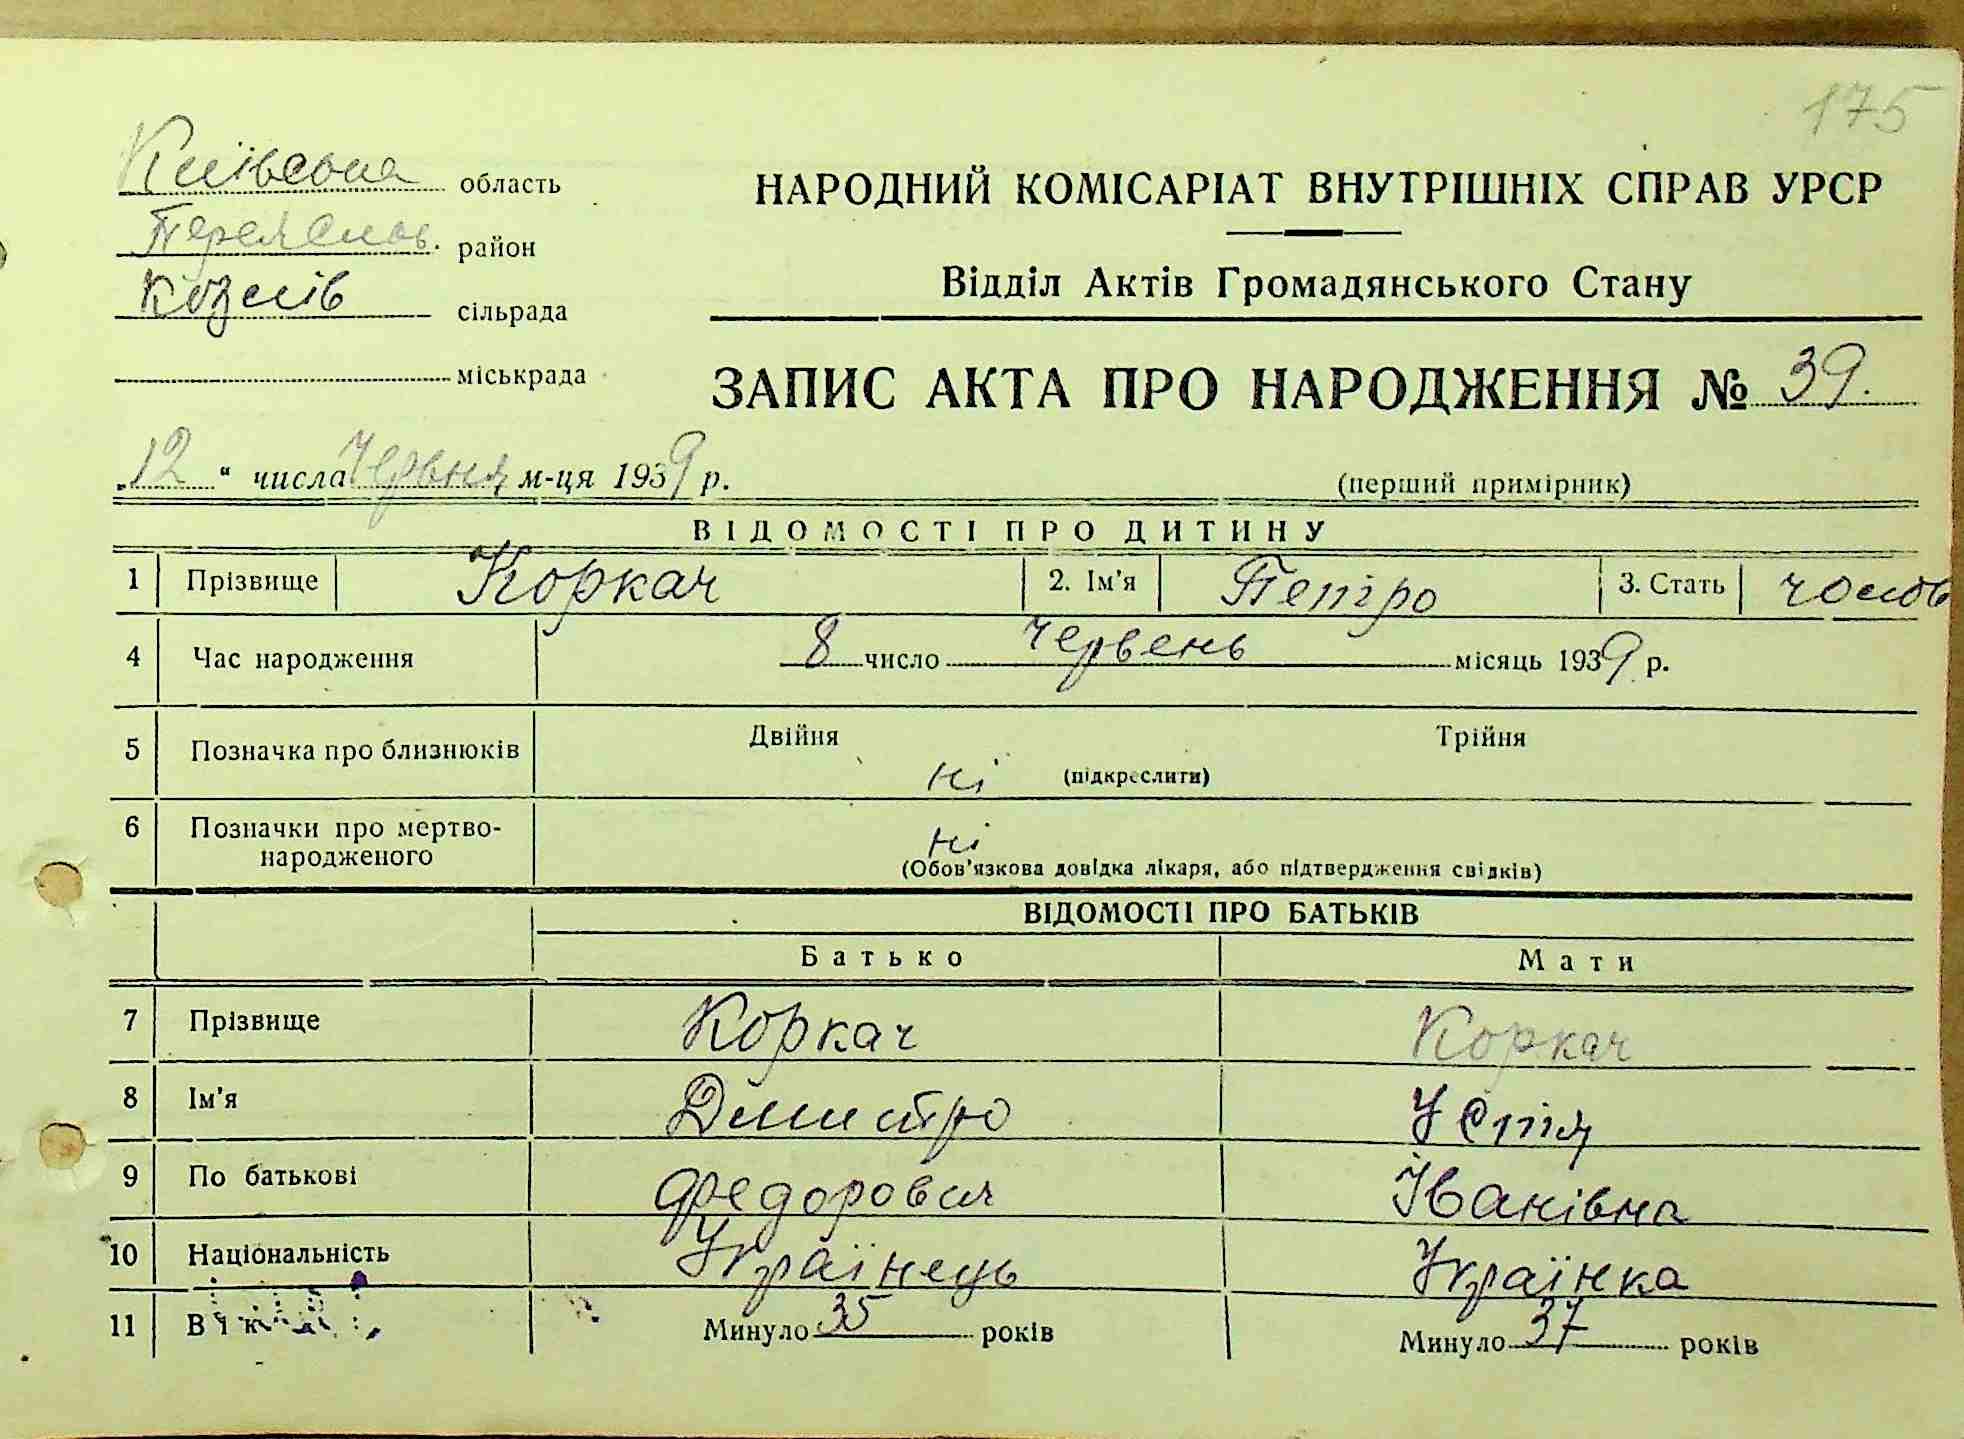 175
Київська область
Переяслов. район
Козлів сільрада
міськрада
НАРОДНИЙ КОМІСАРІАТ ВНУТРІШНІХ СПРАВ УРСР
Відділ Актів Громадянського Стану
ЗАПИС АКТА ПРО НАРОДЖЕННЯ № 39.
„12“ числа Червня м-ця 1939 р.
(перший примірник)
ВІДОМОСТІ ПРО ДИТИНУ
1 Прізвище Коркач 2. Ім'я Петро 3. Стать чолов
4 Час народження 8 число Червень місяць 1939 р.
5 Позначка про близнюків Двійня Трійня
ні (підкреслити)
6 Позначки про мертво-
народженого ні
(Обов'язкова довідка лікаря, або підтвердження свідків)
ВІДОМОСТІ ПРО БАТЬКІВ
Батько Мати
7 Прізвище Коркач Коркач
8 Ім'я Дмитро Устія
9 По батькові Федорович Іванівна
10 Національність Українець Українка
11 Вік Минуло 35 років Минуло 37 років